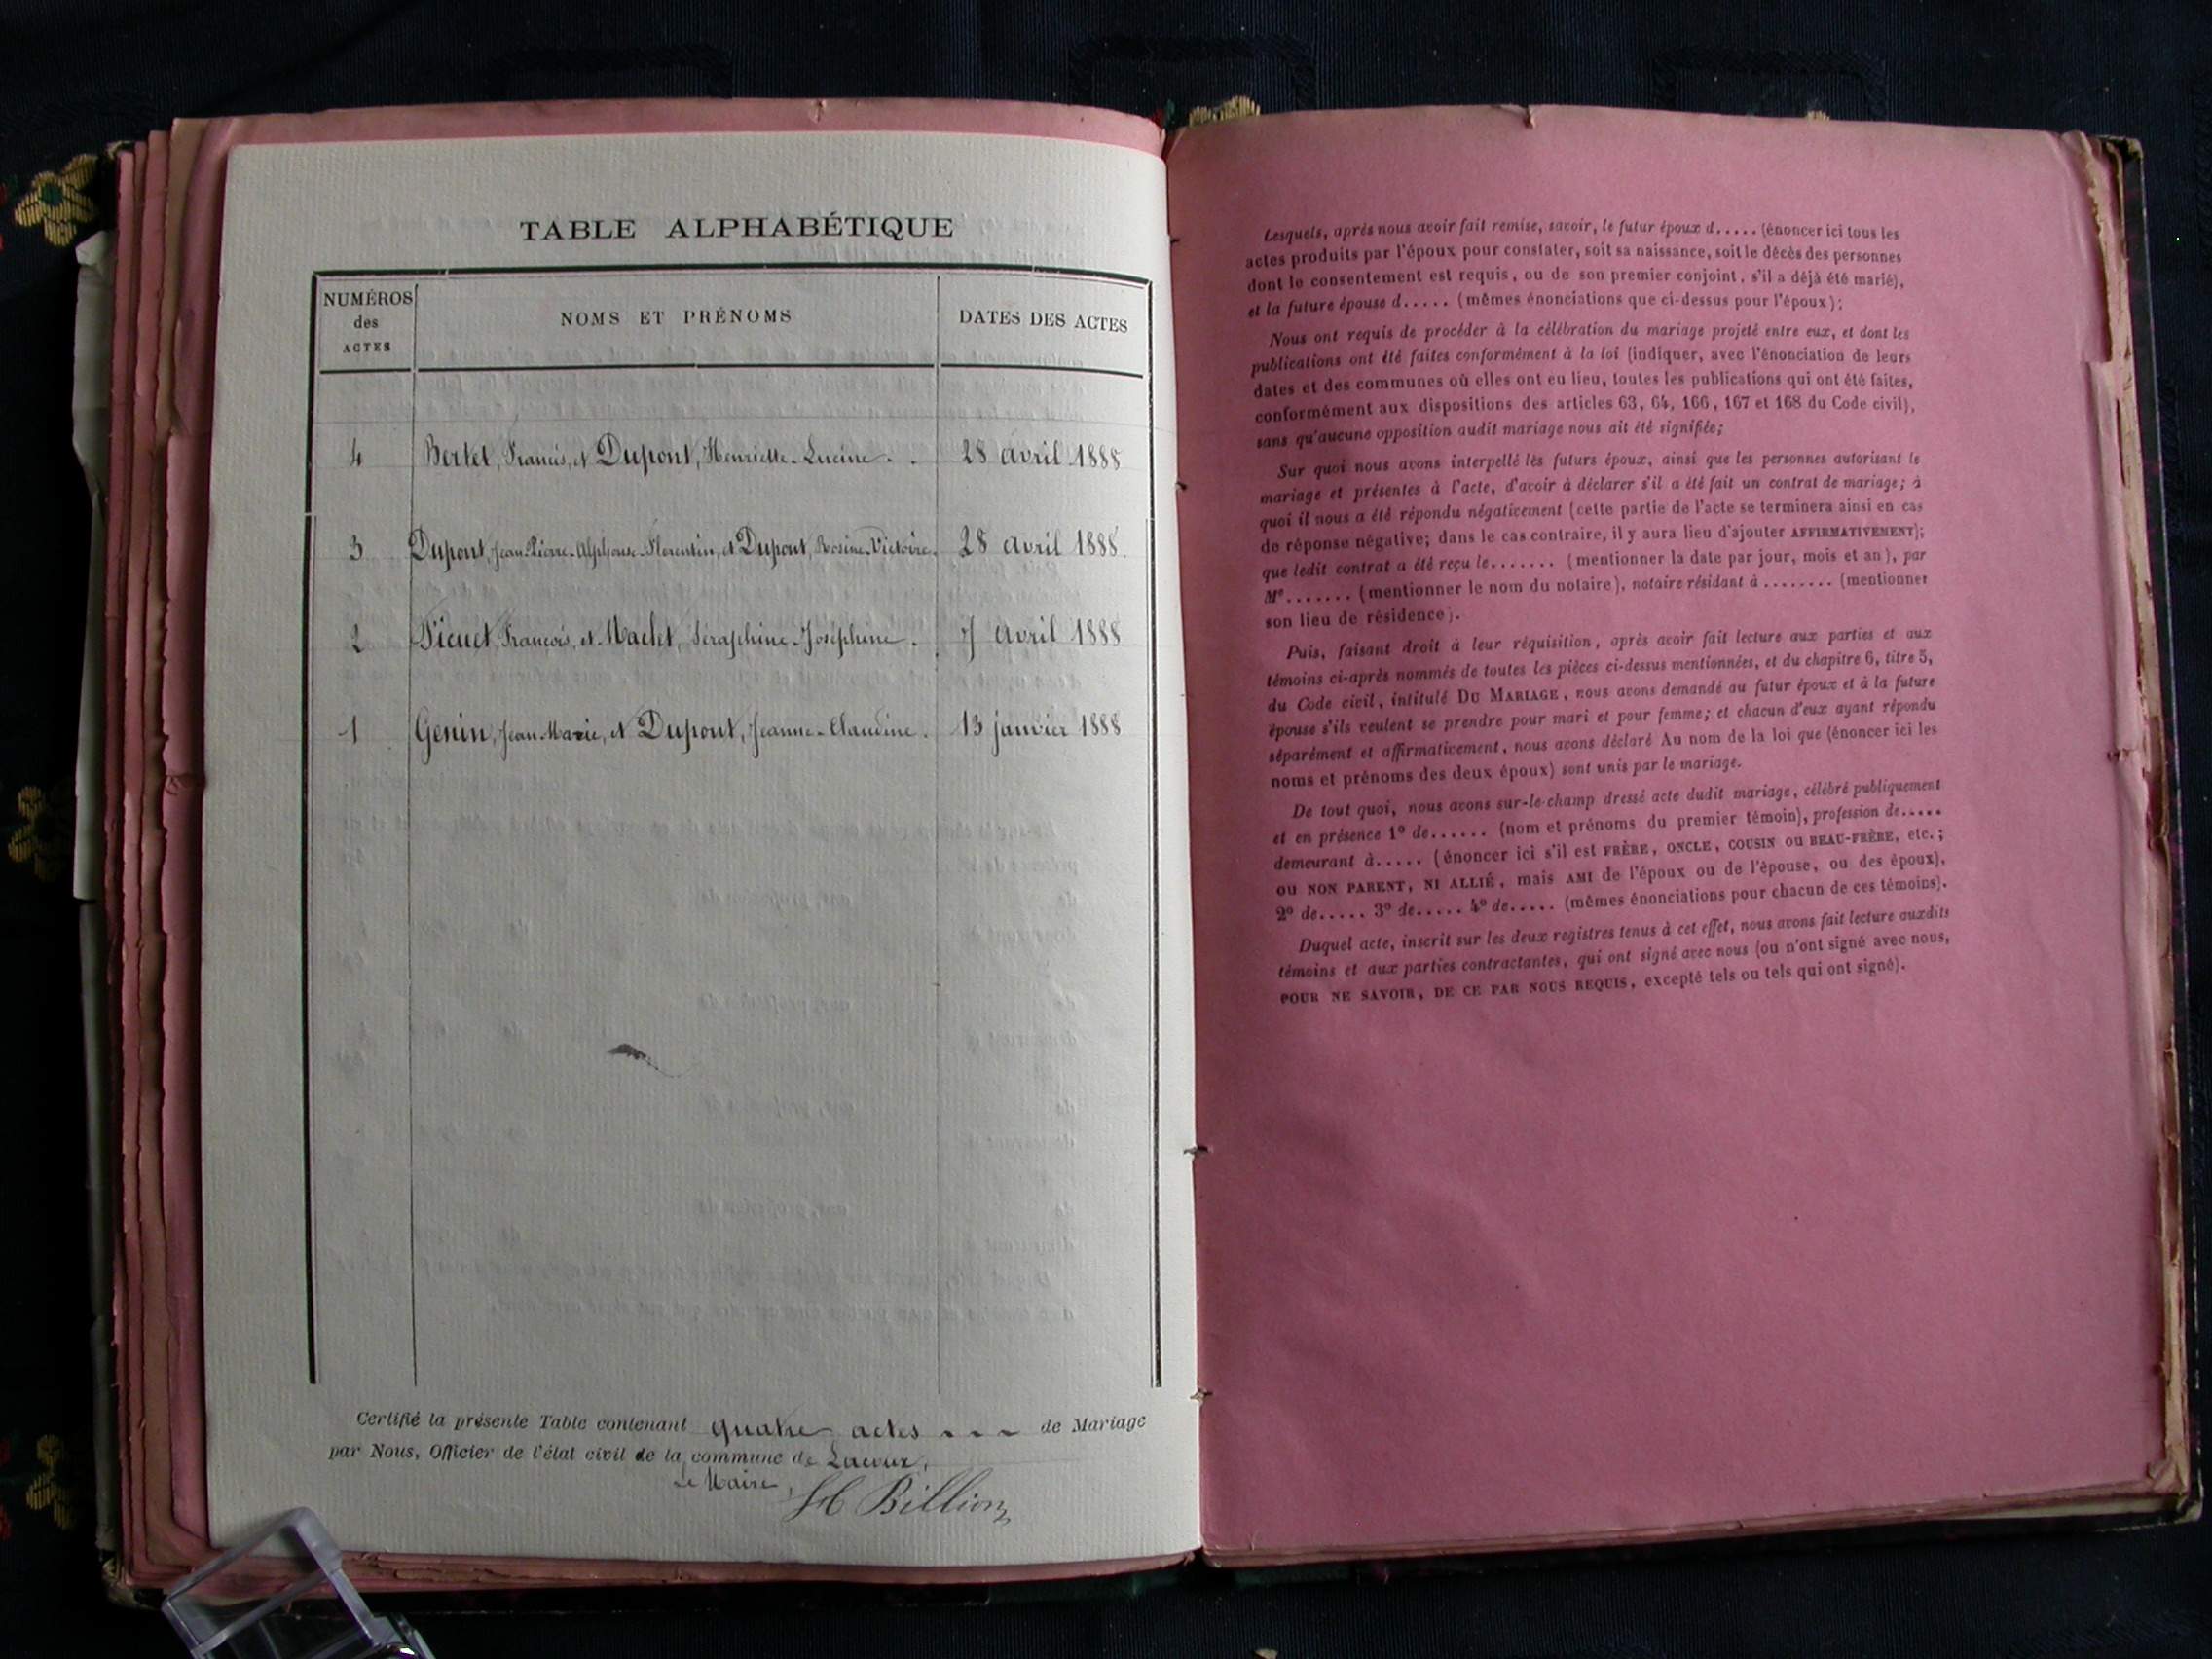 TABLE ALPHABÉTIQUE
NUMÉROS
des
ACTES
NOMS ET PRÉNOMS
DATES DES ACTES
4 Bertet, Francis, et Dupont, Henriette-Lucine. . 28 avril 1888
3 Dupont, Jean-Pierre-Alphonse-Florentin, et Dupont, Rosine-Victoire. 28 avril 1888.
2 François, et Machet, Séraphine-Joséphine. 7 avril 1888
1 Genin, Jean-Marie, et Dupont, Jeanne-Claudine. 13 janvier 1888
Certifié la présente Table contenant quatre actes de Mariage
par Nous, Officier de l'état civil de la commune de Lacoux,
Le Maire,
Billion
Lesquels, après nous avoir fait remise, savoir, le futur époux d..... (énoncer ici tous les
actes produits par l'époux pour constater, soit sa naissance, soit le décès des personnes
dont le consentement est requis, ou de son premier conjoint, s'il a déjà été marié),
et la future épouse d..... (mêmes énonciations que ci-dessus pour l'époux);
Nous ont requis de procéder à la célébration du mariage projeté entre eux, et dont les
publications ont été faites conformément à la loi (indiquer, avec l'énonciation de leurs
dates et des communes où elles ont eu lieu, toutes les publications qui ont été faites,
conformément aux dispositions des articles 63, 64, 166, 167 et 168 du Code civil),
sans qu'aucune opposition audit mariage nous ait été signifiée;
Sur quoi nous avons interpellé les futurs époux, ainsi que les personnes autorisant le
mariage et présentes à l'acte, d'avoir à déclarer s'il a été fait un contrat de mariage; à
quoi il nous a été répondu négativement (cette partie de l'acte se terminera ainsi en cas
de réponse négative; dans le cas contraire, il y aura lieu d'ajouter AFFIRMATIVEMENT);
que ledit contrat a été reçu le....... (mentionner la date par jour, mois et an), par
Me....... (mentionner le nom du notaire), notaire résidant à ........ (mentionner
son lieu de résidence).
Puis, faisant droit à leur réquisition, après avoir fait lecture aux parties et aux
témoins ci-après nommés de toutes les pièces ci-dessus mentionnées, et du chapitre 6, titre 5,
du Code civil, intitulé DU MARIAGE, nous avons demandé au futur époux et à la future
épouse s'ils veulent se prendre pour mari et pour femme; et chacun d'eux ayant répondu
séparément et affirmativement, nous avons déclaré Au nom de la loi que (énoncer ici les
noms et prénoms des deux époux) sont unis par le mariage.
De tout quoi, nous avons sur-le-champ dressé acte dudit mariage, célébré publiquement
et en présence 1º de...... (nom et prénoms du premier témoin), profession de.....
demeurant à..... (énoncer ici s'il est FRÈRE, ONCLE, COUSIN OU BEAU-FRÈRE, etc.;
ou NON PARENT, NI ALLIÉ, mais AMI de l'époux ou de l'épouse, ou des époux),
2º de..... 3º de..... 4º de..... (mêmes énonciations pour chacun de ces témoins).
Duquel acte, inscrit sur les deux registres tenus à cet effet, nous avons fait lecture auxdits
témoins et aux parties contractantes, qui ont signé avec nous (ou n'ont signé avec nous,
POUR NE SAVOIR, DE CE PAR NOUS REQUIS, excepté tels ou tels qui ont signé).